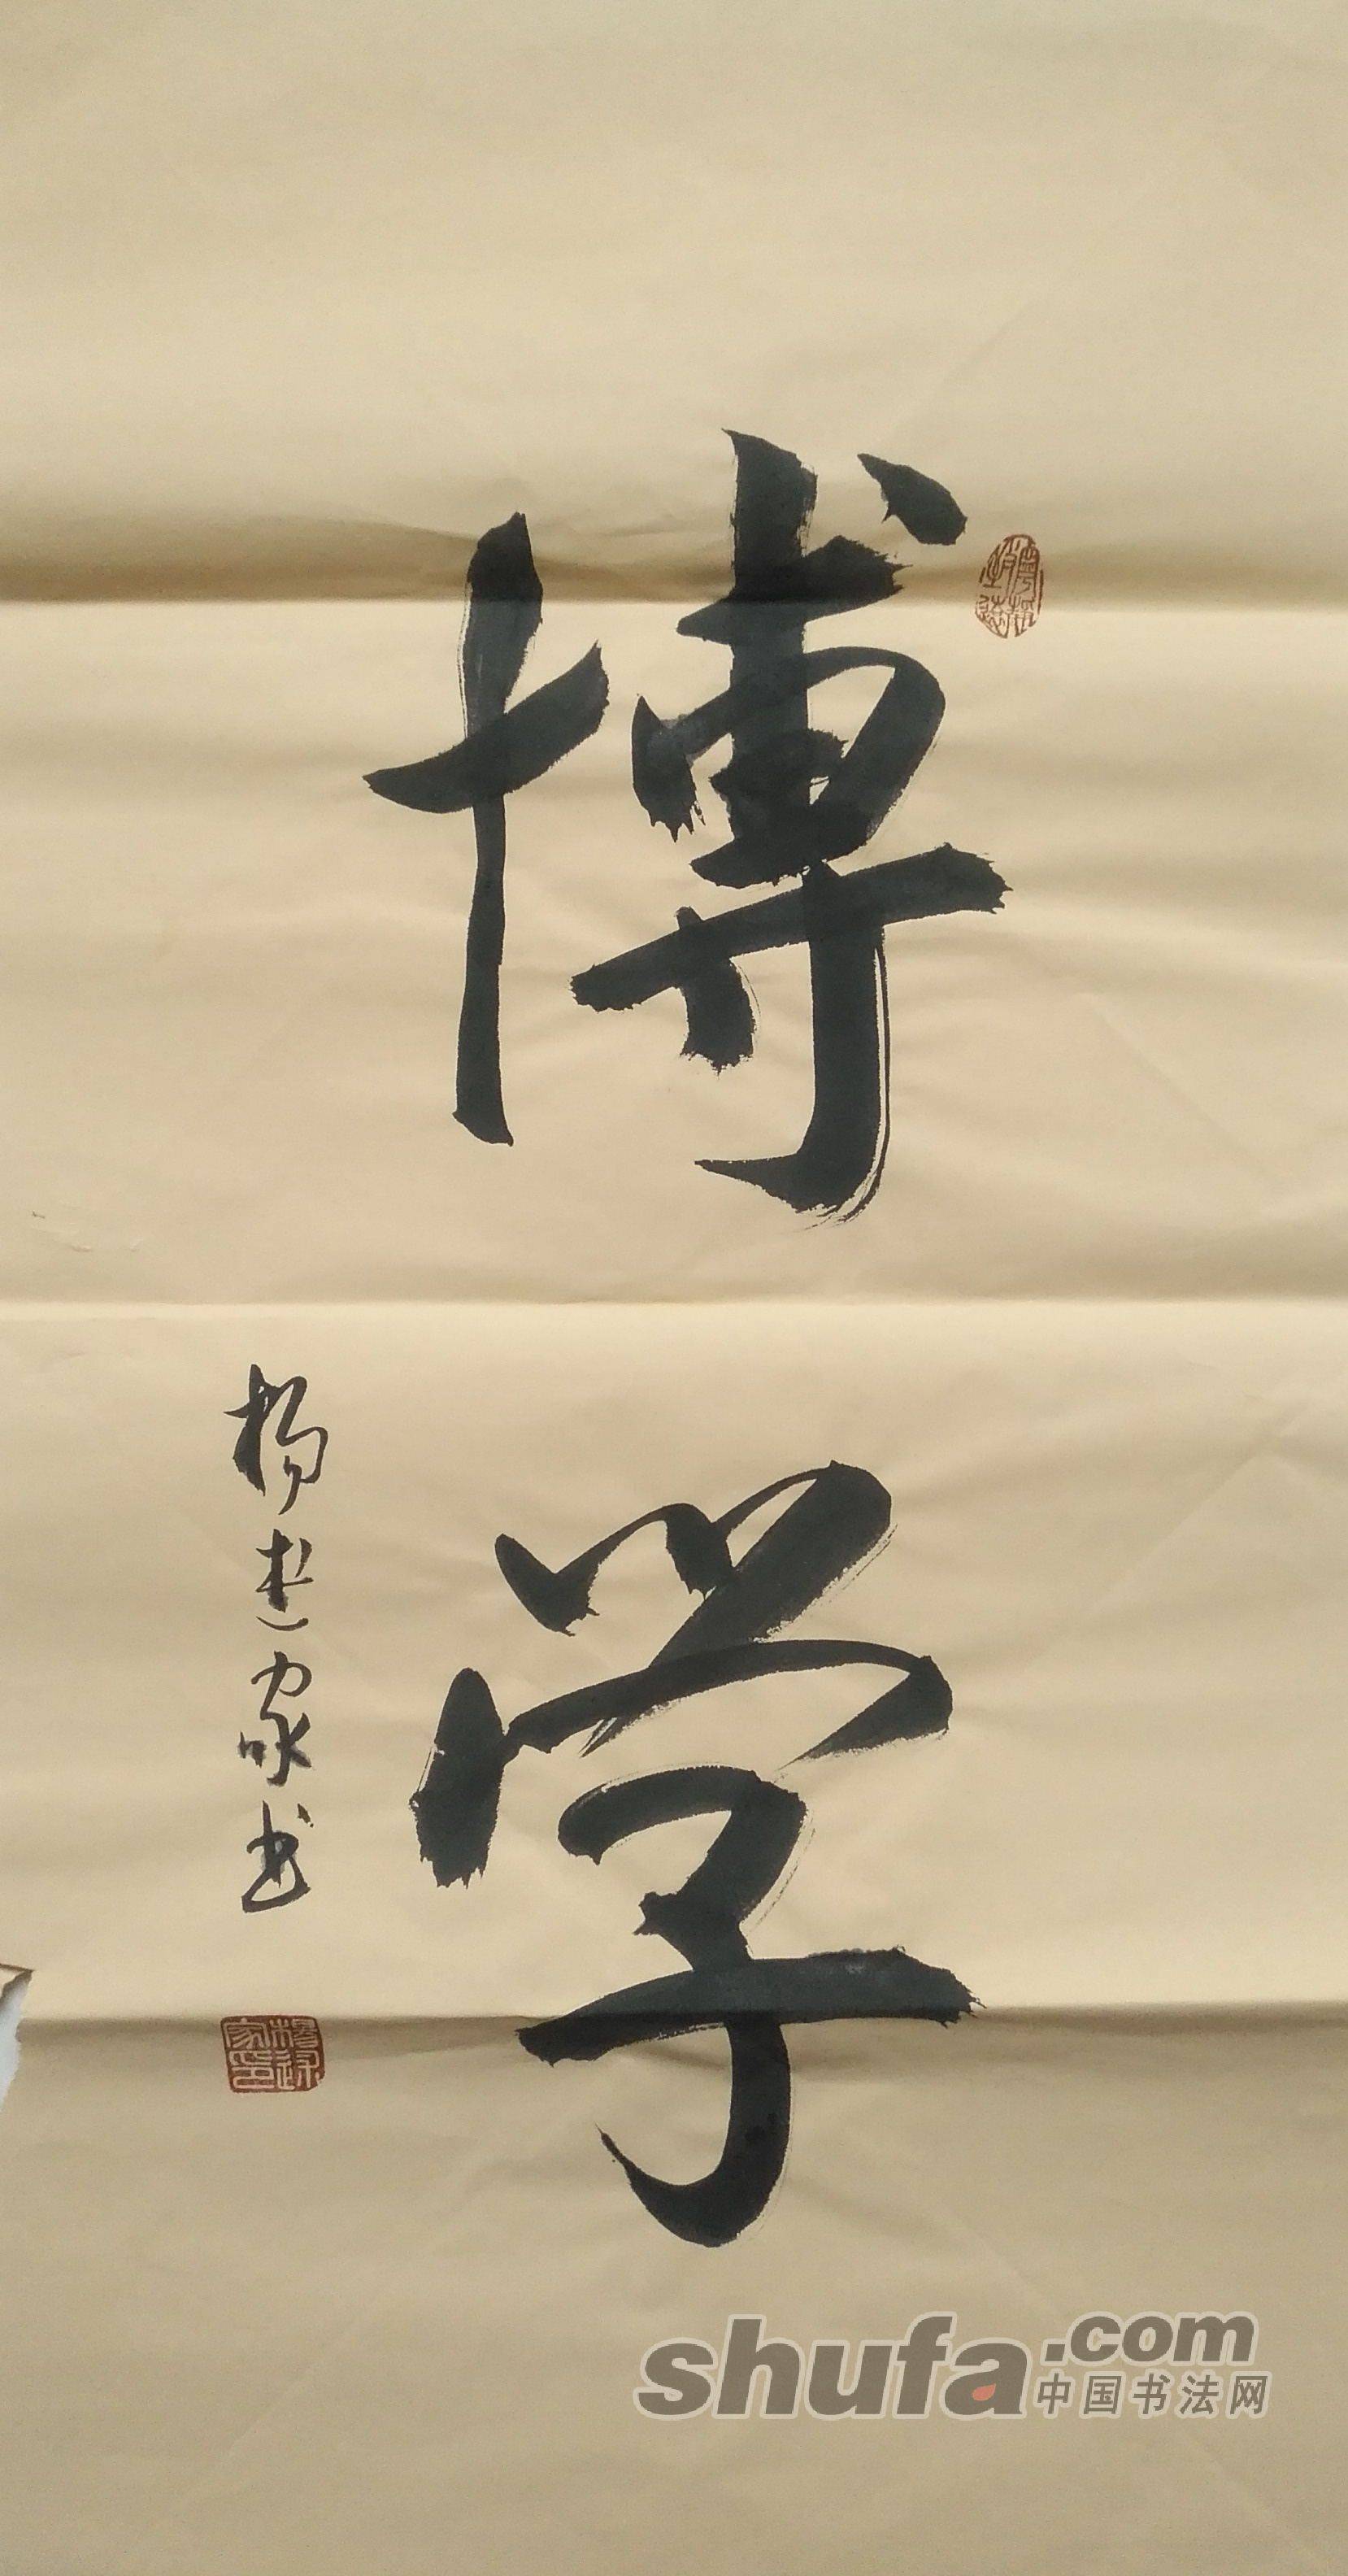 博学
杨述家书
shufa.com
中国书法网